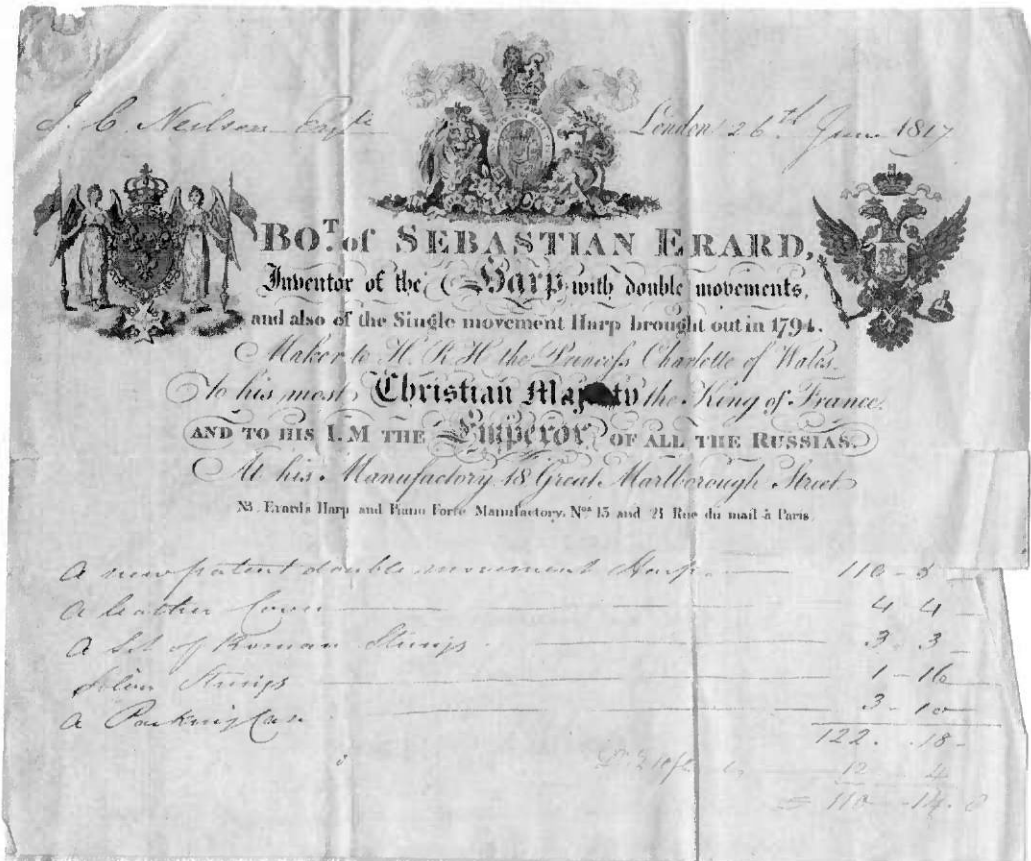 J. C. Neilson Esqre London 26th June 1817
BOT. of SEBASTIAN ERARD,
Inventor of the Harp with double movements,
and also of the Single movement Harp brought out in 1794.
Maker to H. R. H the Princess Charlotte of Wales.
to his most Christian Majesty the King of France.
AND TO HIS I.M THE Emperor OF ALL THE RUSSIAS.
At his Manufactory 18 Great Marlborough Street
NB. Erards Harp and Piano Forte Manufactory. Nos 13 and 21 Rue du mail à Paris
A new patent double movement Harp. — 110 - 5 —
A leather Cover — 4 4 —
A Set of Roman Strings — 3 . 3 —
Silver Strings — 1 - 16
A Packing Case — 3 - 10 —
122 . 18 -
12 4
= 110 - 14 . 0